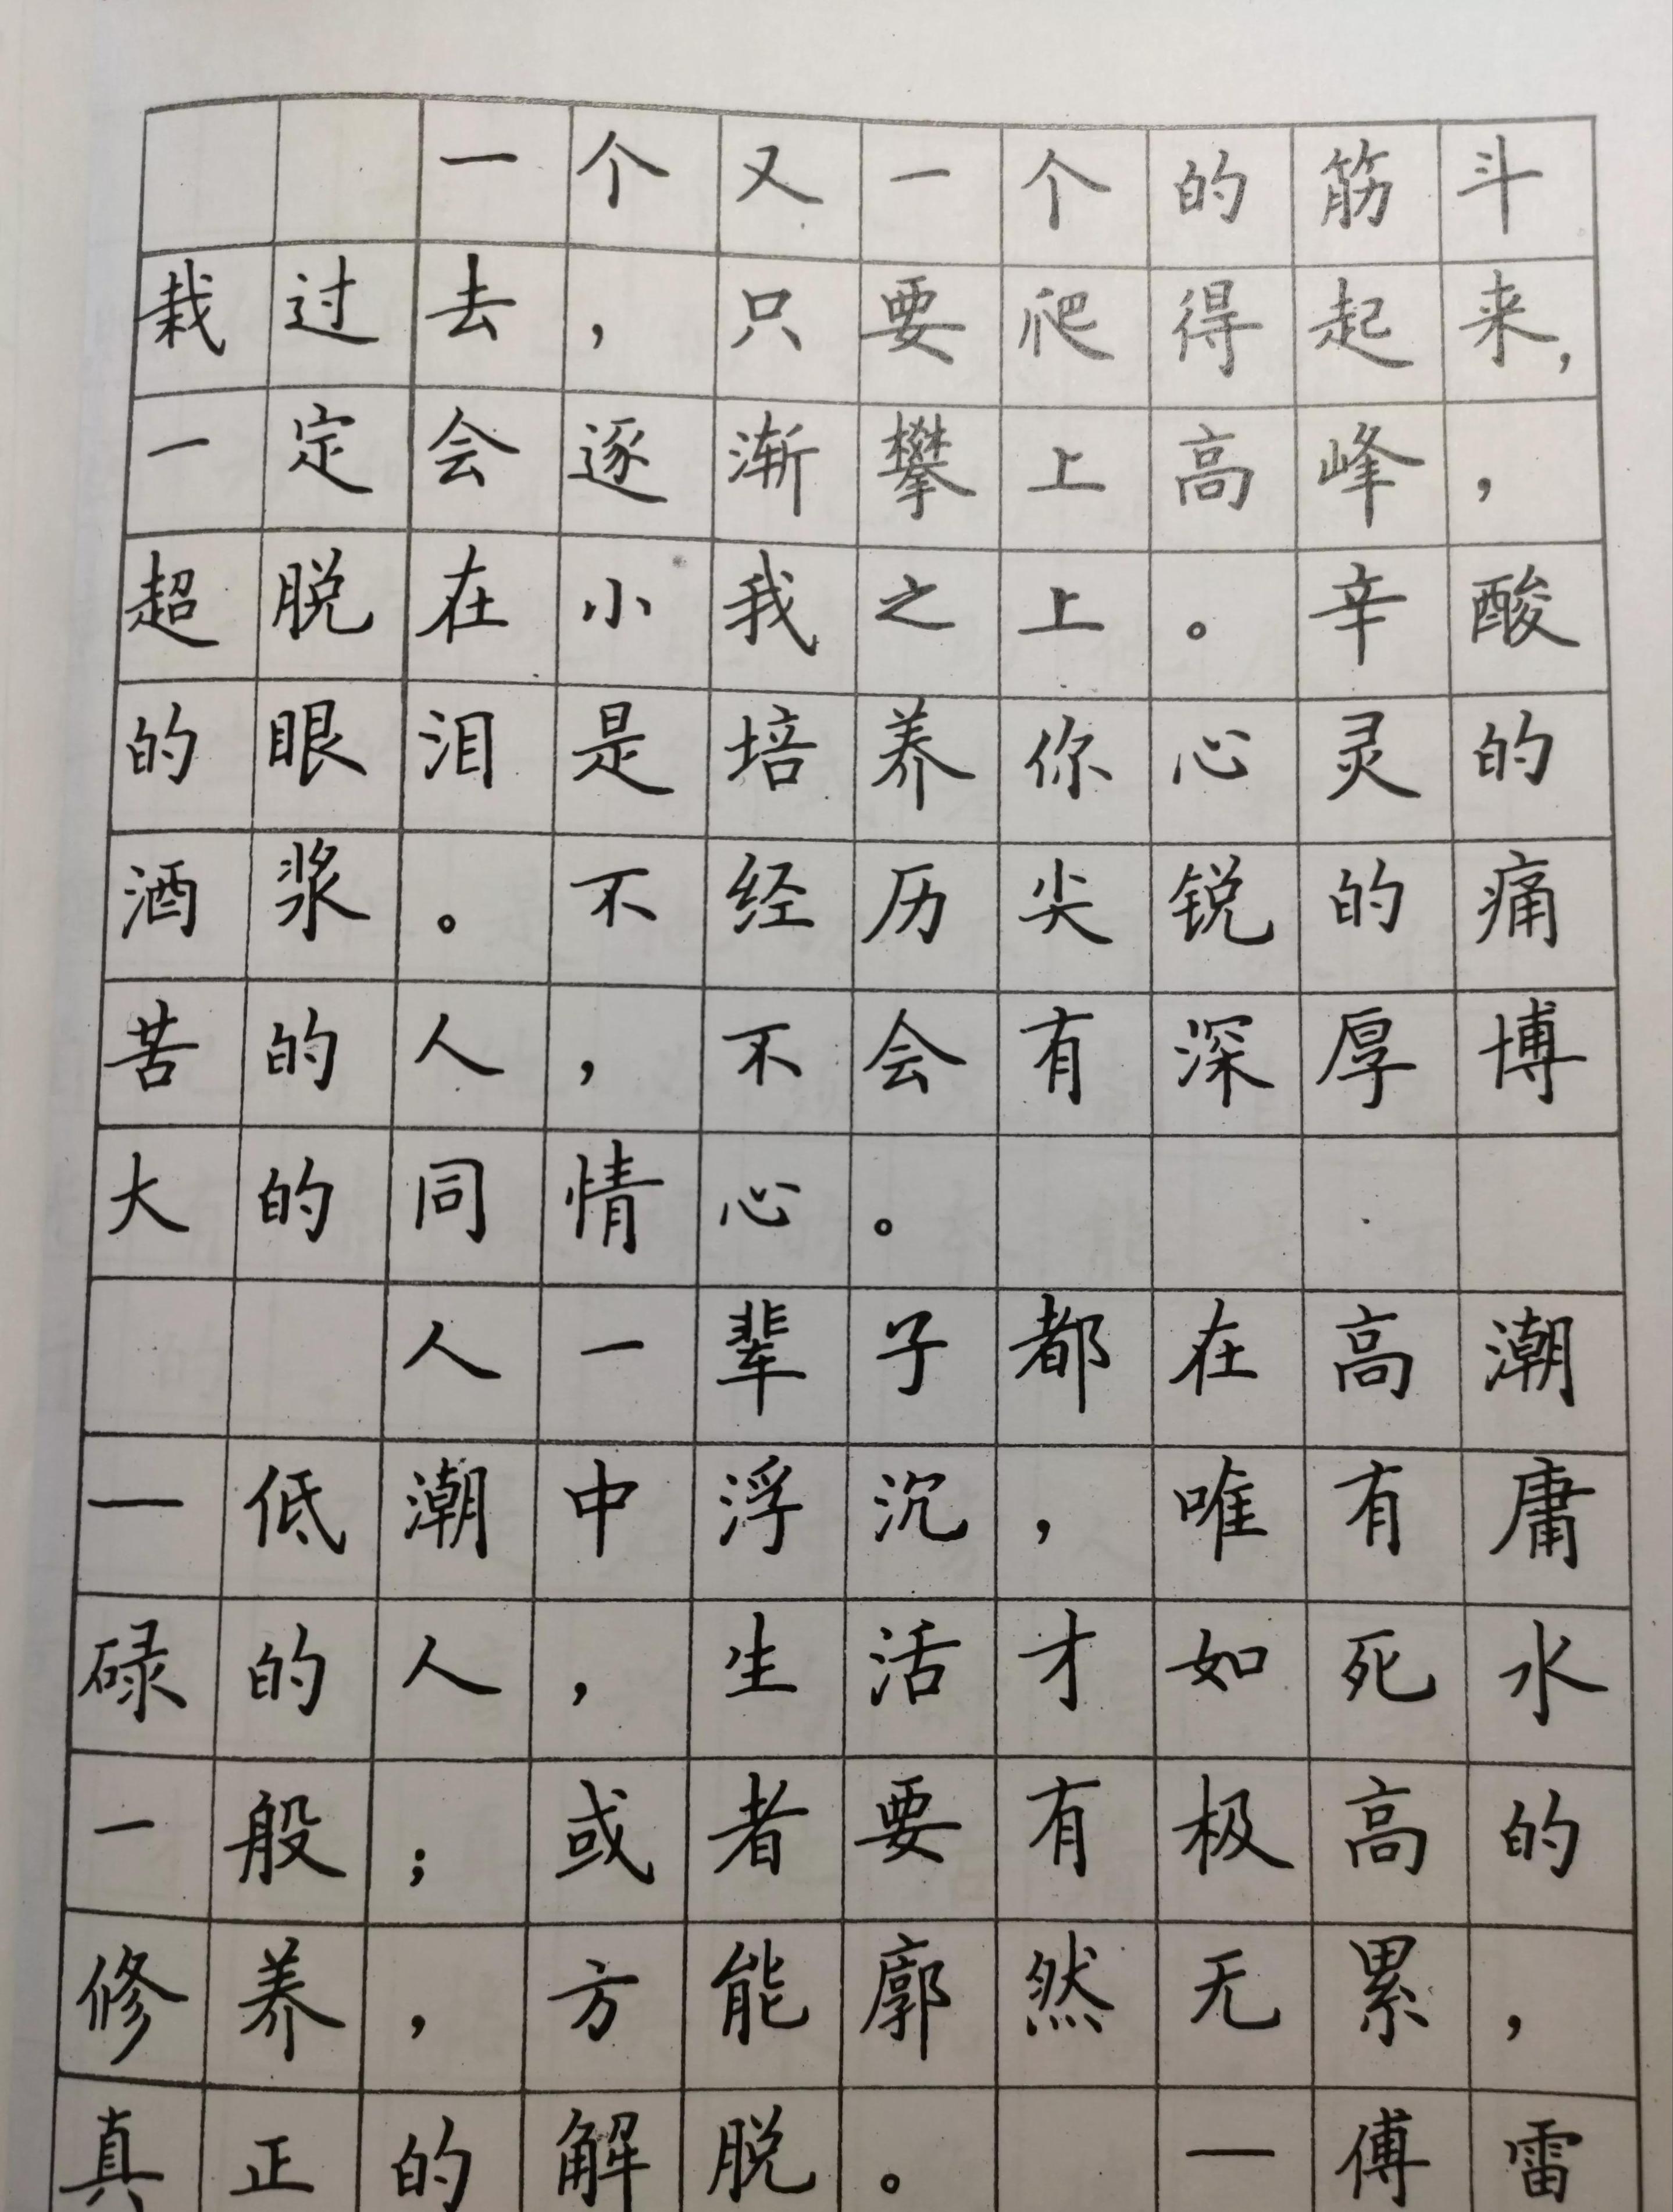 一个又一个的筋斗
栽过去，只要爬得起来，
一定会逐渐攀上高峰，
超脱在小我之上。辛酸
的眼泪是培养你心灵的
酒浆。不经历尖锐的痛
苦的人，不会有深厚博
大的同情心。
人一辈子都在高潮
—低潮中浮沉，唯有庸
碌的人，生活才如死水
一般；或者要有极高的
修养，方能廓然无累，
真正的解脱。—傅雷